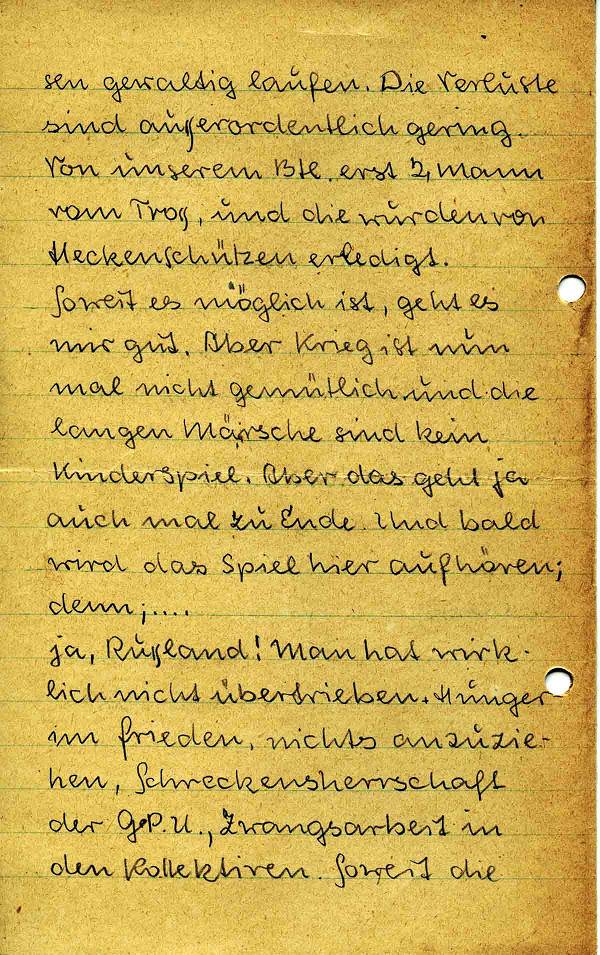 sen gewaltig laufen. Die Verluste
sind außerordentlich gering.
Von unserem Btl. erst 2, Mann
vom Troß, und die wurden von
Heckenschützen erledigt.
Soweit es möglich ist, geht es
mir gut. Aber Krieg ist nun
mal nicht gemütlich und die
langen Märsche sind kein
Kinderspiel. Aber das geht ja
auch mal zu Ende. Und bald
wird das Spiel hier aufhören;
denn ;....
ja, Rußland! Man hat wirk-
lich nicht übertrieben. Hunger
im Frieden, nichts anzuzie-
hen, Schreckensherrschaft
der G.P.U., Zwangsarbeit in
den Kollektiven. Soweit die